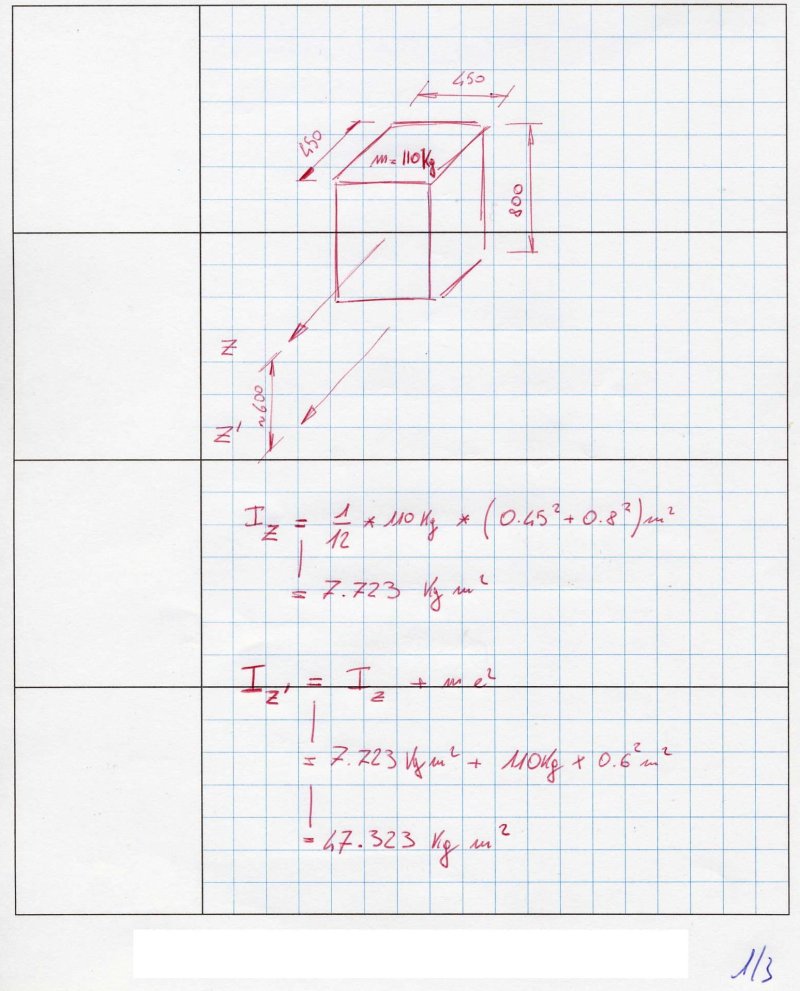 450
450
m = 110 Kg
800
Z
~600
Z'
I_Z = 1/12 * 110 Kg * (0.45² + 0.8²) m²
= 7.723 Kg m²
I_Z' = I_Z + m e²
= 7.723 Kg m² + 110 Kg × 0.6² m²
= 47.323 Kg m²
1/3